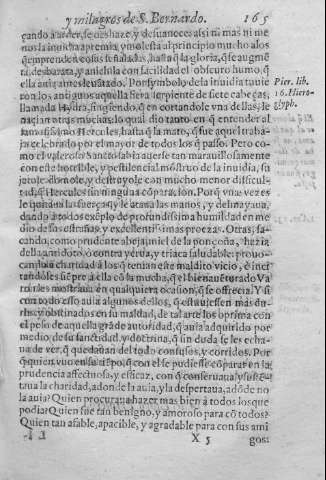 y milagros de S. Bernardo. 165
çando a arder, se deshaze, y desuanece: assi ni mas ni me
nos la inuidia apremia, y molesta al principio mucho a los
q̃ emprenden cosas señaladas, hasta q̃ la gloria, q̃ se augmẽ
ta, desbarata, y anichila con facilidad el obscuro humo, q̃
ella auia antes leuantado. Por symbolo de la inuidia tauie
ron los antiguos aquella fiera serpiente de siete cabeças,
llamada Hydra, fingiendo, q̃ en cortandole vna dellas, le
nacian otras muchas, lo qual dio tanto en q̃ entender al
famosissimo Hercules, hasta q̃ la mato, q̃ fue aquel traba-
jo celebrado por el mayor de todos los q̃ passo. Pero co-
mo el valeroso Sancto sabia auerse tan marauillosamente
con este horrible, y pestilencial mõstruo de la inuidia, su
jetole, domole, y destruyole con mucho menor dificul-
tad, q̃ Hercules sin ninguna cõparacion. Porq̃ vnas vezes
le quitaua la fuerça, y le ataua las manos, y desmayaua,
dando a todos exẽplo de profundissima humildad en me
dio de sus estrañas, y excellentissimas proezas. Otras, sa-
cando, como prudente abeja, miel de la ponçoña, hazia
della antidoto, cõtra yerua, y triaca saludable: prouo-
cando a charidad a los q̃ tenian este maldito vicio, è inci
tandoles siẽpre a ella cõ la mucha, q̃ el bienauẽturado Va
ron les mostraua en qualquiera ocasion, q̃ se offrecia. Y si
con todo esso auia algunos dellos, q̃ estauiessen mas du-
ros, y obstinados en su maldad, de tal arte los oprimia con
el peso de aquella grãde autoridad, q̃ auia adquirido por
medio de su sanctidad, y dotrina, q̃ sin duda se les echa-
ua de ver, q̃ quedauan del todo confusos, y corridos. Por
q̃ quien vuo en su tiẽpo, q̃ con el se pudiesse cõparar en la
prudencia affectuosa, y efficaz, con q̃ conseruaua, y sustẽ-
taua la charidad, adonde la auia, y la despertaua, adõde no
la auia? Quien procuraua hazer mas bien à todos los que
podia? Quien fue tan benigno, y amoroso para cõ todos?
Quien tan afable, apacible, y agradable para con sus ami
X 5 gos:
Pier. lib.
16. Hiero-
glyph.